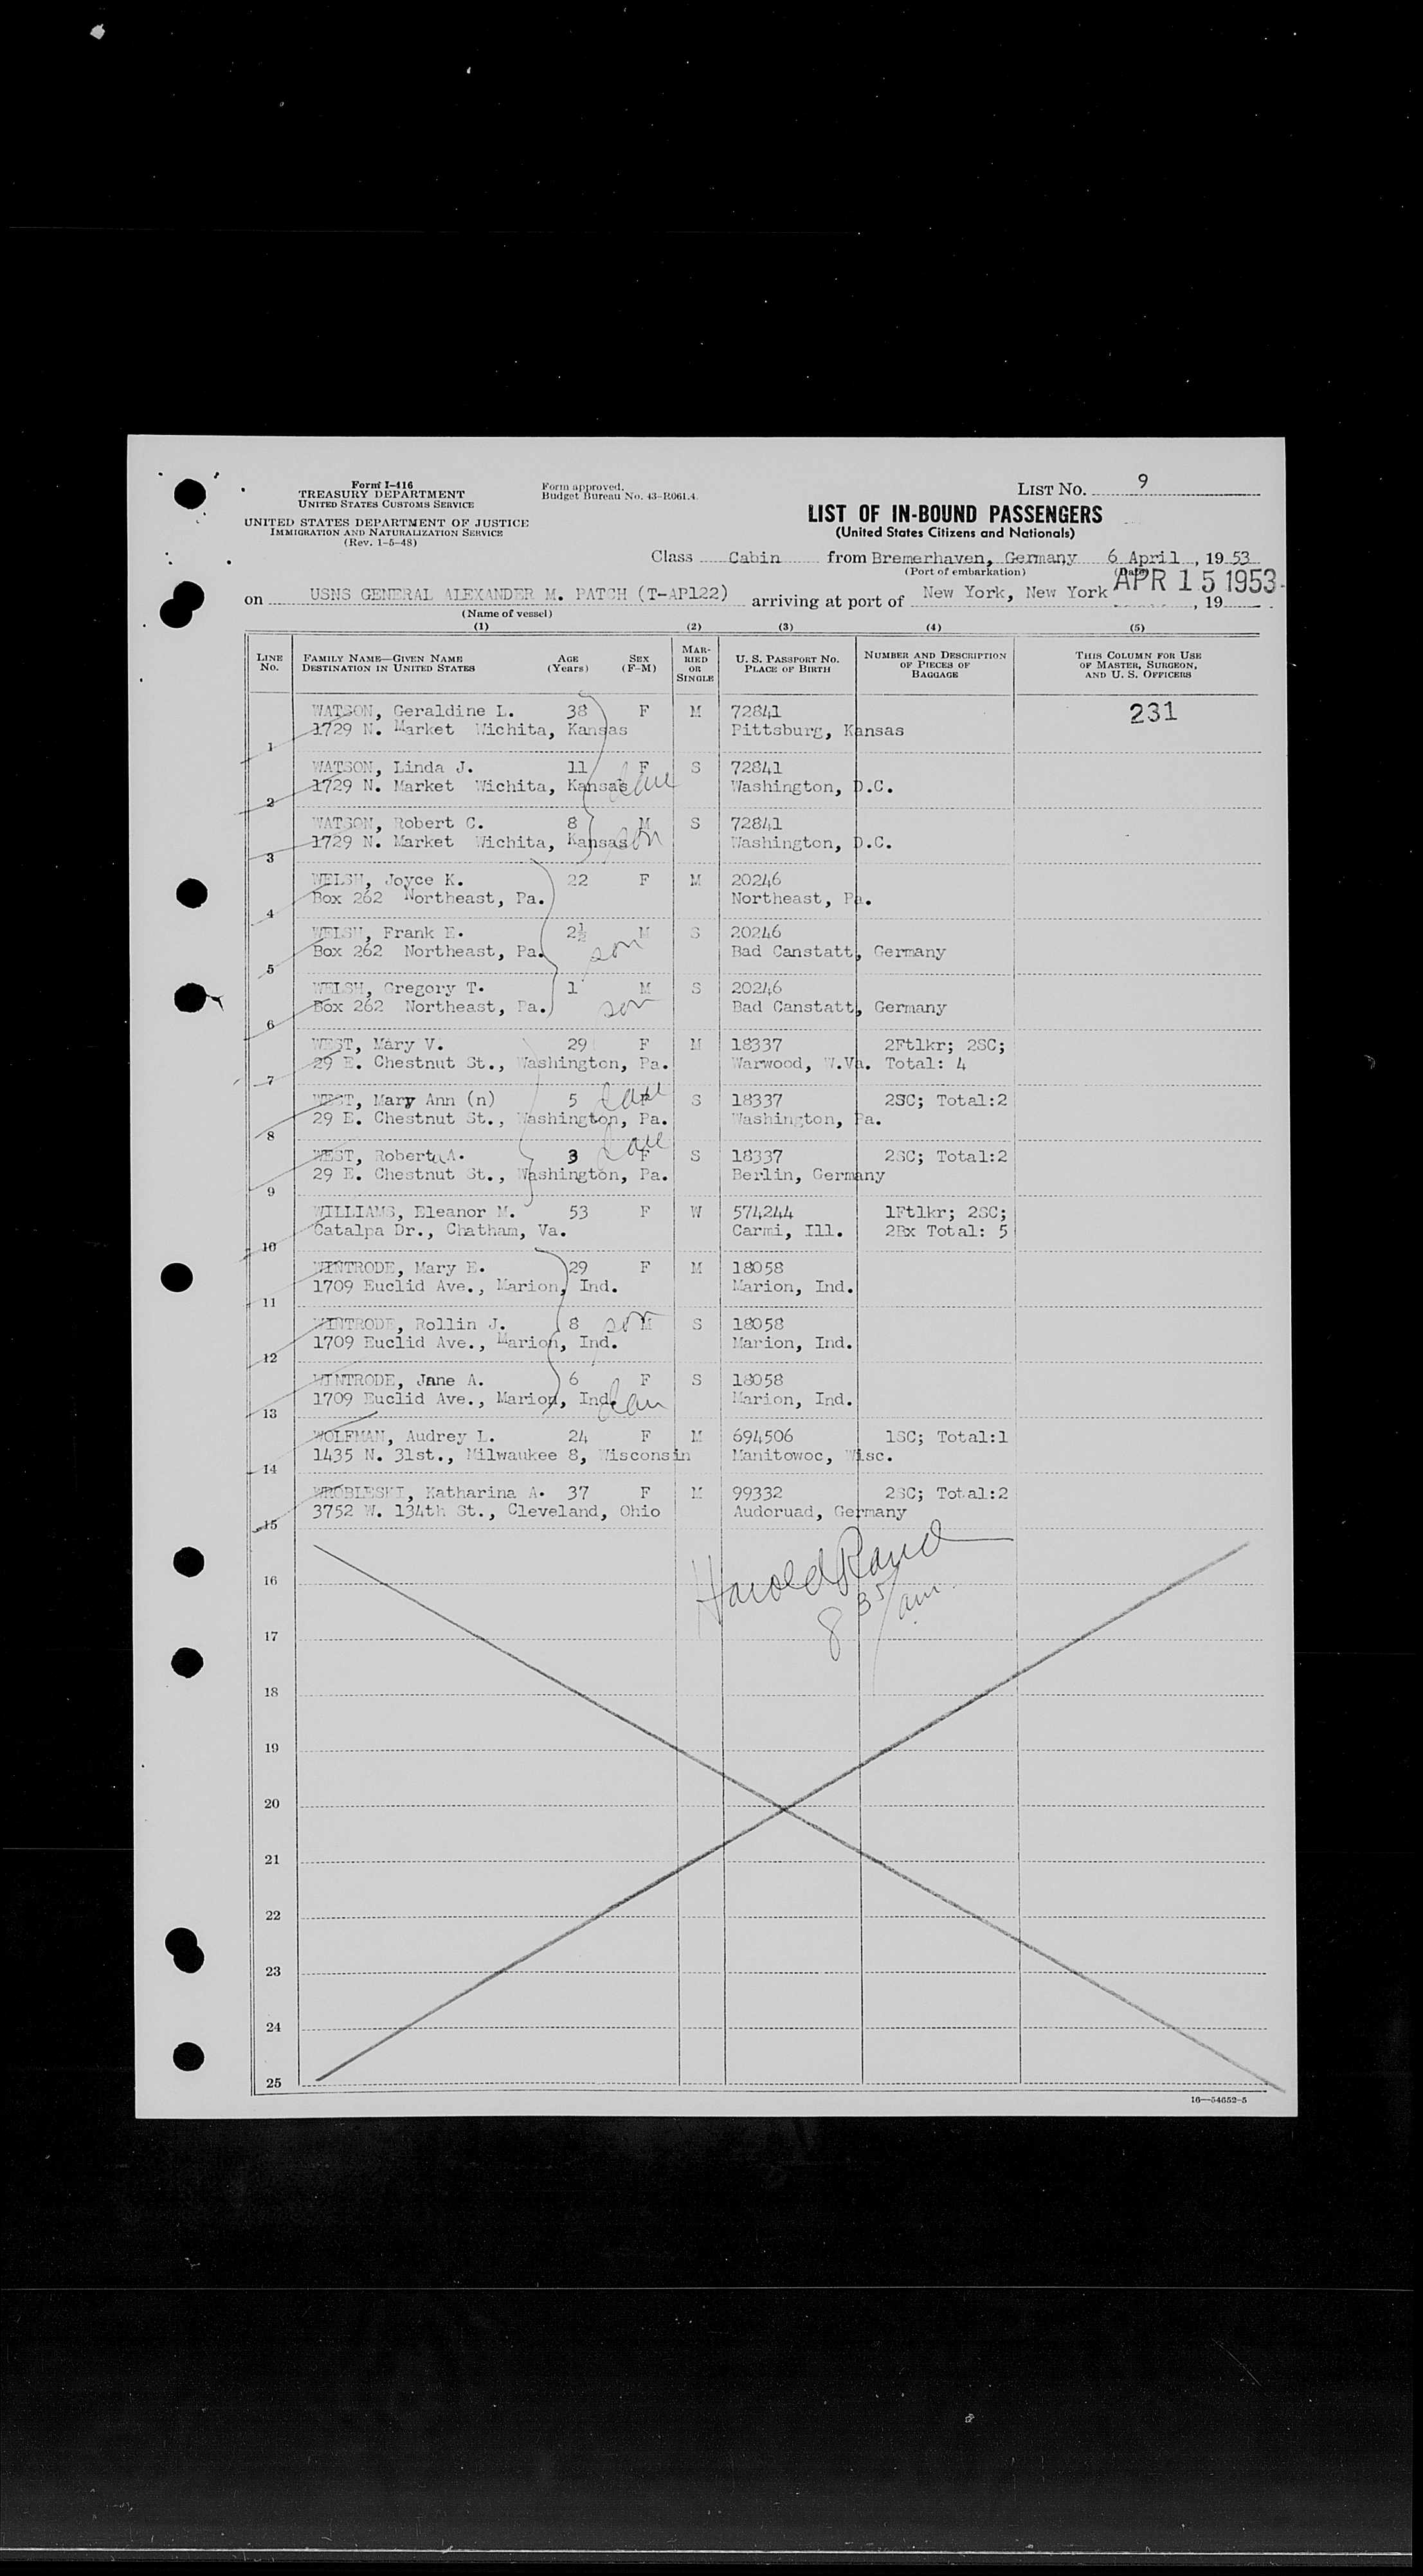 Form I-416
TREASURY DEPARTMENT
UNITED STATES CUSTOMS SERVICE
UNITED STATES DEPARTMENT OF JUSTICE
IMMIGRATION AND NATURALIZATION SERVICE
(Rev. 1-5-48)
Form approved.
Budget Bureau No. 43-R061.4.
LIST No. 9
LIST OF IN-BOUND PASSENGERS
(United States Citizens and Nationals)
Class Cabin from Bremerhaven, Germany 6 April, 19 53
(Port of embarkation) (Date)
on USNS GENERAL ALEXANDER M. PATCH (T-AP122) arriving at port of New York, New York APR 15 1953, 19
(Name of vessel)
(1) (2) (3) (4) (5)
LINE No. FAMILY NAME—GIVEN NAME DESTINATION IN UNITED STATES AGE (Years) SEX (F-M) MARRIED OR SINGLE U. S. PASSPORT No. PLACE OF BIRTH NUMBER AND DESCRIPTION OF PIECES OF BAGGAGE THIS COLUMN FOR USE OF MASTER, SURGEON, AND U. S. OFFICERS
WATSON, Geraldine L. 38 F M 72841 231
1 1729 N. Market Wichita, Kansas Pittsburg, Kansas
WATSON, Linda J. 11 F S 72841
2 1729 N. Market Wichita, Kansas Washington, D.C.
WATSON, Robert C. 8 M S 72841
3 1729 N. Market Wichita, Kansas son Washington, D.C.
WELSH, Joyce K. 22 F M 20246
4 Box 262 Northeast, Pa. Northeast, Pa.
WELSH, Frank E. 2½ M S 20246
5 Box 262 Northeast, Pa. son Bad Canstatt, Germany
WELSH, Gregory T. 1 M S 20246
6 Box 262 Northeast, Pa. son Bad Canstatt, Germany
WEST, Mary V. 29 F M 18337 2Ftlkr; 2SC;
7 29 E. Chestnut St., Washington, Pa. Warwood, W.Va. Total: 4
WEST, Mary Ann (n) 5 F S 18337 2SC; Total:2
8 29 E. Chestnut St., Washington, Pa. Washington, Pa.
WEST, Roberta A. 3 F S 18337 2SC; Total:2
9 29 E. Chestnut St., Washington, Pa. Berlin, Germany
WILLIAMS, Eleanor M. 53 F W 574244 1Ftlkr; 2SC;
10 Catalpa Dr., Chatham, Va. Carmi, Ill. 2Bx Total: 5
WINTRODE, Mary E. 29 F M 18058
11 1709 Euclid Ave., Marion, Ind. Marion, Ind.
WINTRODE, Rollin J. 8 son M S 18058
12 1709 Euclid Ave., Marion, Ind. Marion, Ind.
WINTRODE, Jane A. 6 F S 18058
13 1709 Euclid Ave., Marion, Ind. Marion, Ind.
WOLFMAN, Audrey L. 24 F M 694506 1SC; Total:1
14 1435 N. 31st., Milwaukee 8, Wisconsin Manitowoc, Wisc.
WROBLESKI, Katharina A. 37 F M 99332 2SC; Total:2
15 3752 W. 134th St., Cleveland, Ohio Audoruad, Germany
Harold Rand
16
8 35/am
17
18
19
20
21
22
23
24
25
16—54652-5